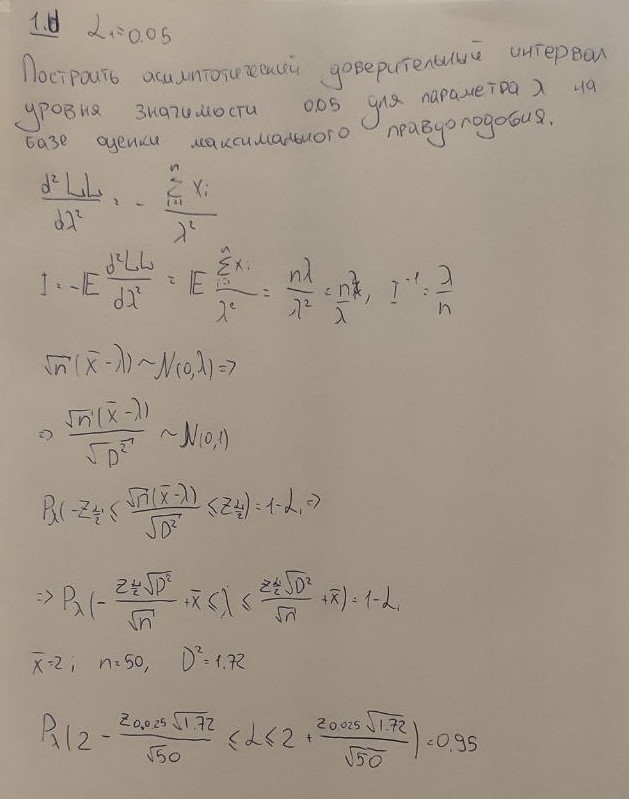 1.d α₁=0.05
Построить асимптотический доверительный интервал
уровня значимости 0.05 для параметра λ на
базе оценки максимального правдоподобия.
d²LL/dλ² = - ∑ᵢ₌₁ⁿ xᵢ / λ²
I = -𝔼 d²LL/dλ² = 𝔼 ∑ᵢ₌₁ⁿ xᵢ / λ² = nλ/λ² = n/λ, I⁻¹ = λ/n
√n(x̄-λ) ~ N(0,λ) =>
=> √n(x̄-λ)/√D² ~ N(0,1)
P_λ(-z_{α₁/2} ≤ √n(x̄-λ)/√D² ≤ z_{α₁/2}) = 1-α₁ =>
=> P_λ(-z_{α₁/2}√D²/√n + x̄ ≤ λ ≤ z_{α₁/2}√D²/√n + x̄) = 1-α₁
x̄=2; n=50, D²=1.72
P_λ(2 - z_{0.025}√1.72/√50 ≤ λ ≤ 2 + z_{0.025}√1.72/√50) = 0.95